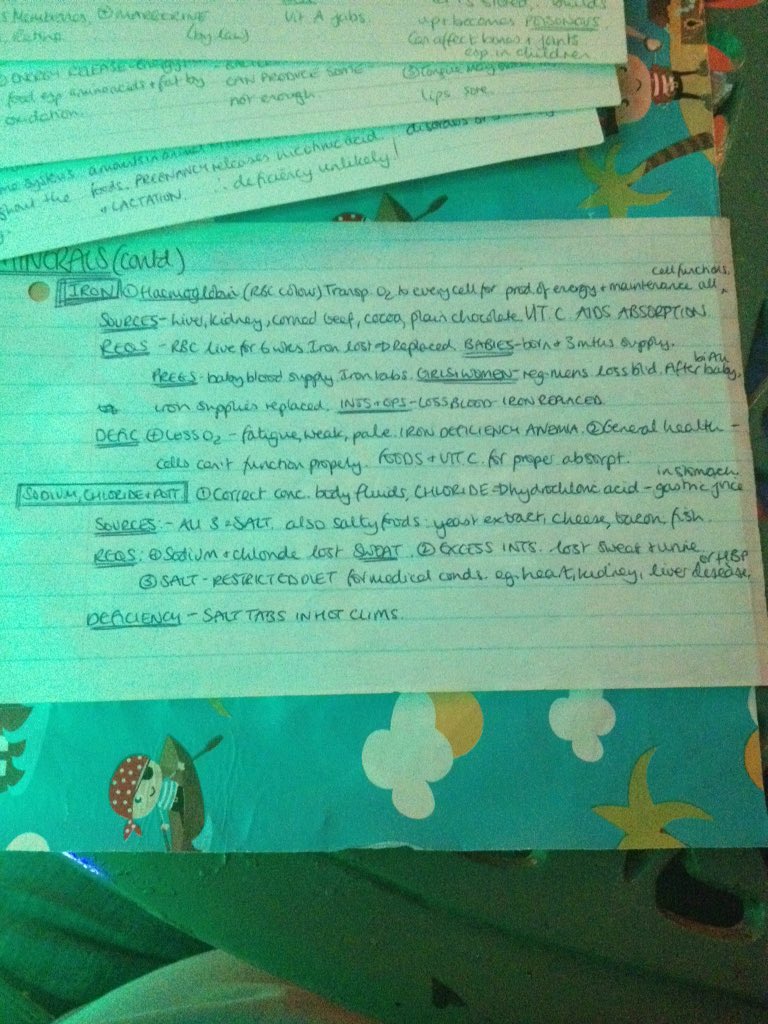 Membranes, ② MARGERINE Vit A jabs.
Retina. (by law)
up + becomes POISONOUS.
Can affect bones + joints
esp in children
① ENERGY RELEASE-
food esp amino acids + fat by CAN PRODUCE SOME
oxidation. not enough lips sore.
systems amounts in
the foods. PREGNANCY releases nicotinic acid
+ LACTATION. ∴ deficiency unlikely
MINERALS (contd)
cell functions.
IRON ① Haemoglobin (RBC colour) Transp. O₂ to every cell for prod. of energy + maintenance all
SOURCES - liver, kidney, corned beef, cocoa, plain chocolate. VIT. C AIDS ABSORPTION.
REQS - RBC live for 6 wks. Iron lost → Replaced. BABIES - born + 3 mths supply.
PREGS - baby blood supply. Iron tabs. GIRLS + WOMEN - reg. mens loss bld. After baby,
iron supplies replaced. INJS + OPS - LOSS BLOOD - IRON REPLACED.
DEFIC ① LOSS O₂ - fatigue, weak, pale. IRON DEFICIENCY ANEMIA. ② General health -
cells can't function properly. FOODS + VIT C. for proper absorpt.
in stomach.
SODIUM, CHLORIDE + POTT ① Correct conc. body fluids, CHLORIDE → hydrochloric acid - gastric juice
SOURCES: - All 3 = SALT. also salty foods: yeast extract, cheese, bacon, fish.
REQS: ① Sodium + chloride lost SWEAT. ② EXCESS INTS. lost sweat + urine
or HBP
③ SALT - RESTRICTED DIET for medical conds. eg. heart, kidney, liver disease,
DEFICIENCY - SALT TABS IN HOT CLIMS.